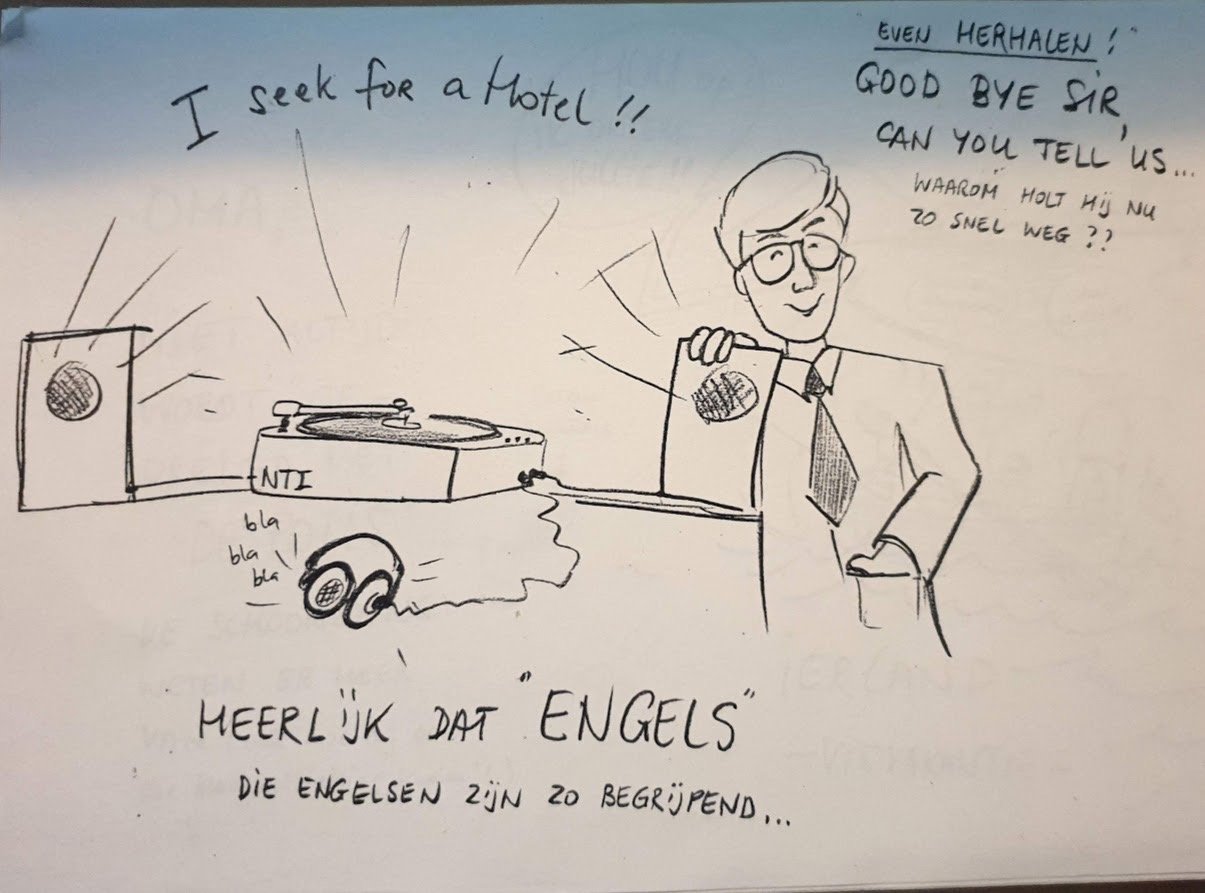 EVEN HERHALEN!
GOOD BYE SIR,
CAN YOU TELL US...
WAAROM HOLT HIJ NU
ZO SNEL WEG ??
I seek for a Hotel !!
NTI
bla
bla
bla
HEERLIJK DAT "ENGELS"
DIE ENGELSEN ZIJN ZO BEGRIJPEND...